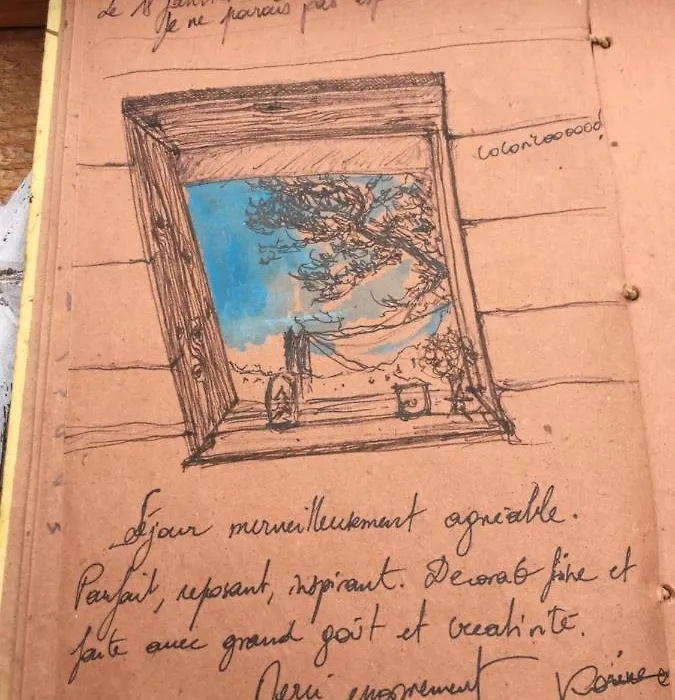 Le 18
Je ne parais pas
cocoricoooooo!
Séjour merveilleusement agréable.
Parfait, reposant, inspirant. Décorat° fine et
faite avec grand goût et créativité.
Merci énormément